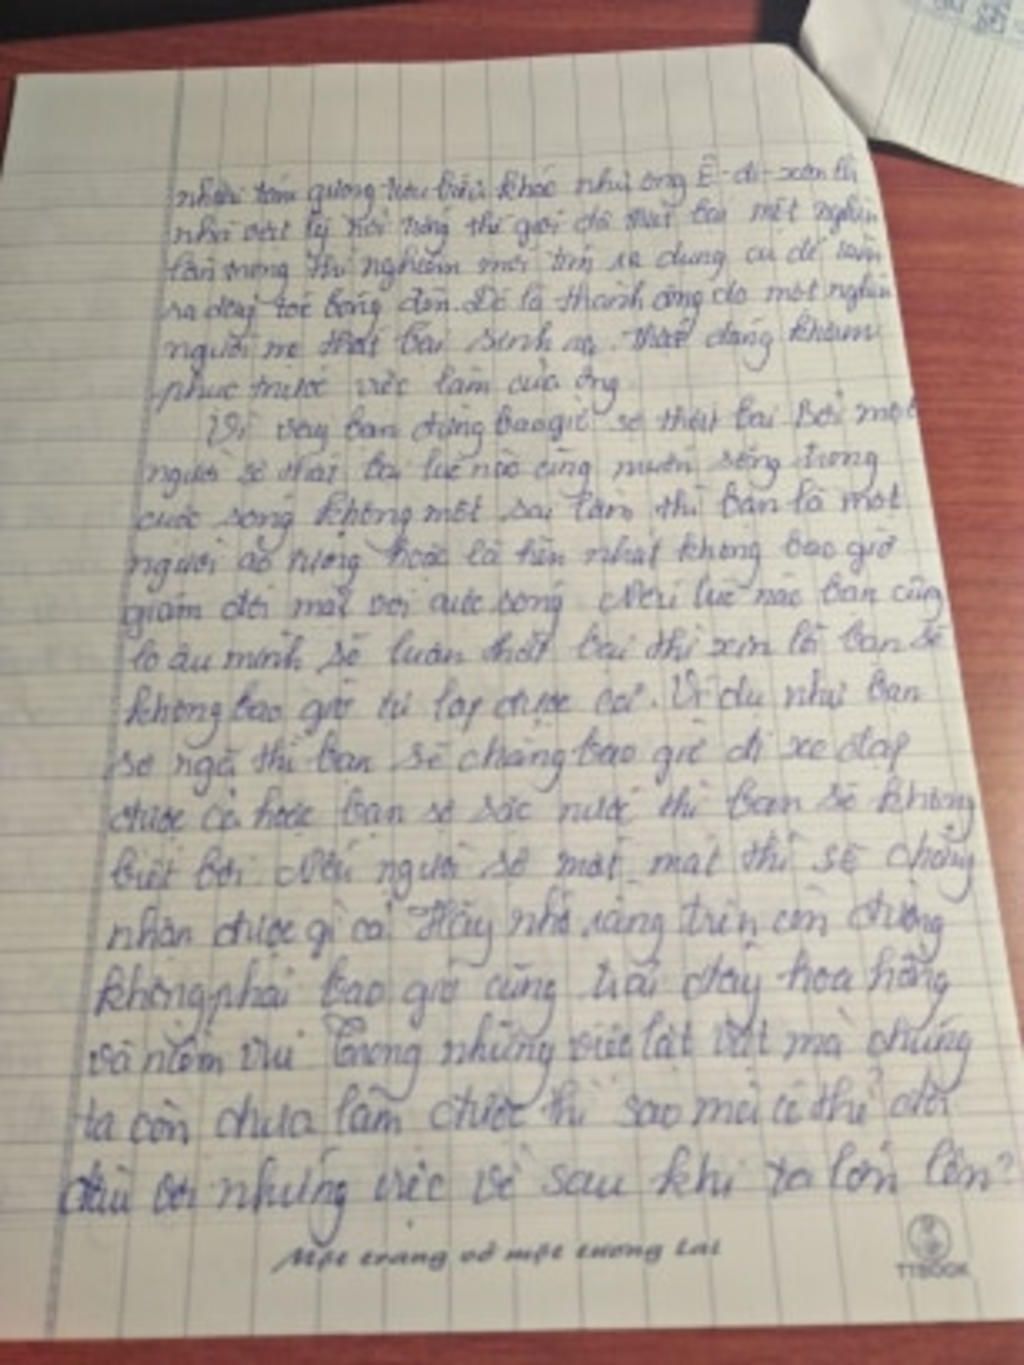 nhiều tấm gương tiêu biểu khác như ông Ê-đi-xơn là
nhà vật lý nổi tiếng thế giới đã thất bại một nghìn
lần trong thí nghiệm mới tìm ra dụng cụ để làm
ra dây tóc bóng đèn. Đó là thành công do một nghìn
người mẹ thất bại sinh ra. thật đáng khâm
phục trước việc làm của ông
Vì vậy bạn đừng bao giờ sợ thất bại Bởi một
người sợ thất bại lúc nào cũng muốn sống trong
cuộc sống không một sai lầm thì bạn là một
người ảo tưởng hoặc là hèn nhát không bao giờ
giám đối mặt với cuộc sống Nếu lúc nào bạn cũng
lo âu mình sẽ luôn thất bại thì xin lỗi bạn sẽ
không bao giờ tự lập được cả. Ví dụ như bạn
sợ ngã thì bạn sẽ chẳng bao giờ đi xe đạp
được cả hoặc bạn sợ sặc nước thì bạn sẽ không
biết bơi Nếu người sợ mất mát thì sẽ chẳng
nhận được gì cả Hãy nhớ rằng trên con đường
không phải bao giờ cũng trải đầy hoa hồng
và niềm vui Trong những việc lặt vặt mà chúng
ta còn chưa làm được thì sao mà có thể đối
đầu với những việc về sau khi ta lớn lên?
Một trang vở một tương lai
TTBOOK